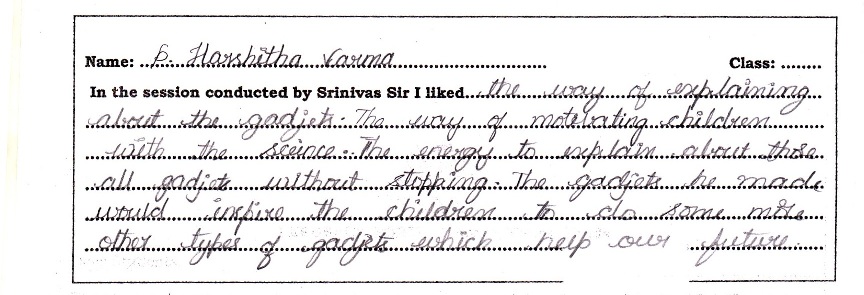 Name: P. Harshitha Varma Class:
In the session conducted by Srinivas Sir I liked the way of explaining
about the gadjets. The way of motivating children
with the sceince. The energy to explain about those
all gadjets without stopping. The gadjets he made
would inspire the children to do some more
other types of gadjets which help our future.